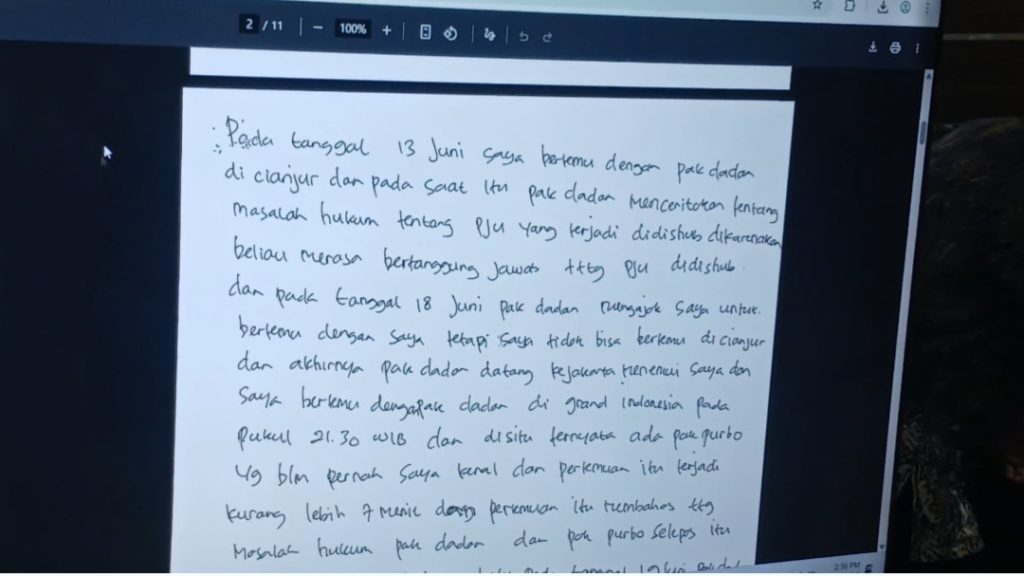 2 / 11
100%
Pada tanggal 13 Juni saya bertemu dengan pak dadan
di cianjur dan pada saat itu pak dadan Menceritakan tentang
masalah hukum tentang PJU yang terjadi didishub dikarenakan
beliau merasa bertanggung jawab tttg PJU didishub.
dan pada tanggal 18 Juni pak dadan mengajak saya untuk
bertemu dengan saya tetapi saya tidak bisa bertemu di cianjur
dan akhirnya pak dadan datang kejakarta menemui saya dan
Saya bertemu dengapak dadan di grand indonesia pada
pukul 21.30 WIB dan disitu ternyata ada pak purbo
yg blm pernah saya kenal dan pertemuan itu terjadi
kurang lebih 7 menit pertemuan itu membahas ttg
Masalah hukum pak dadan dan pak purbo selepas itu
pada tanggal 19 Juni
2:36 PM